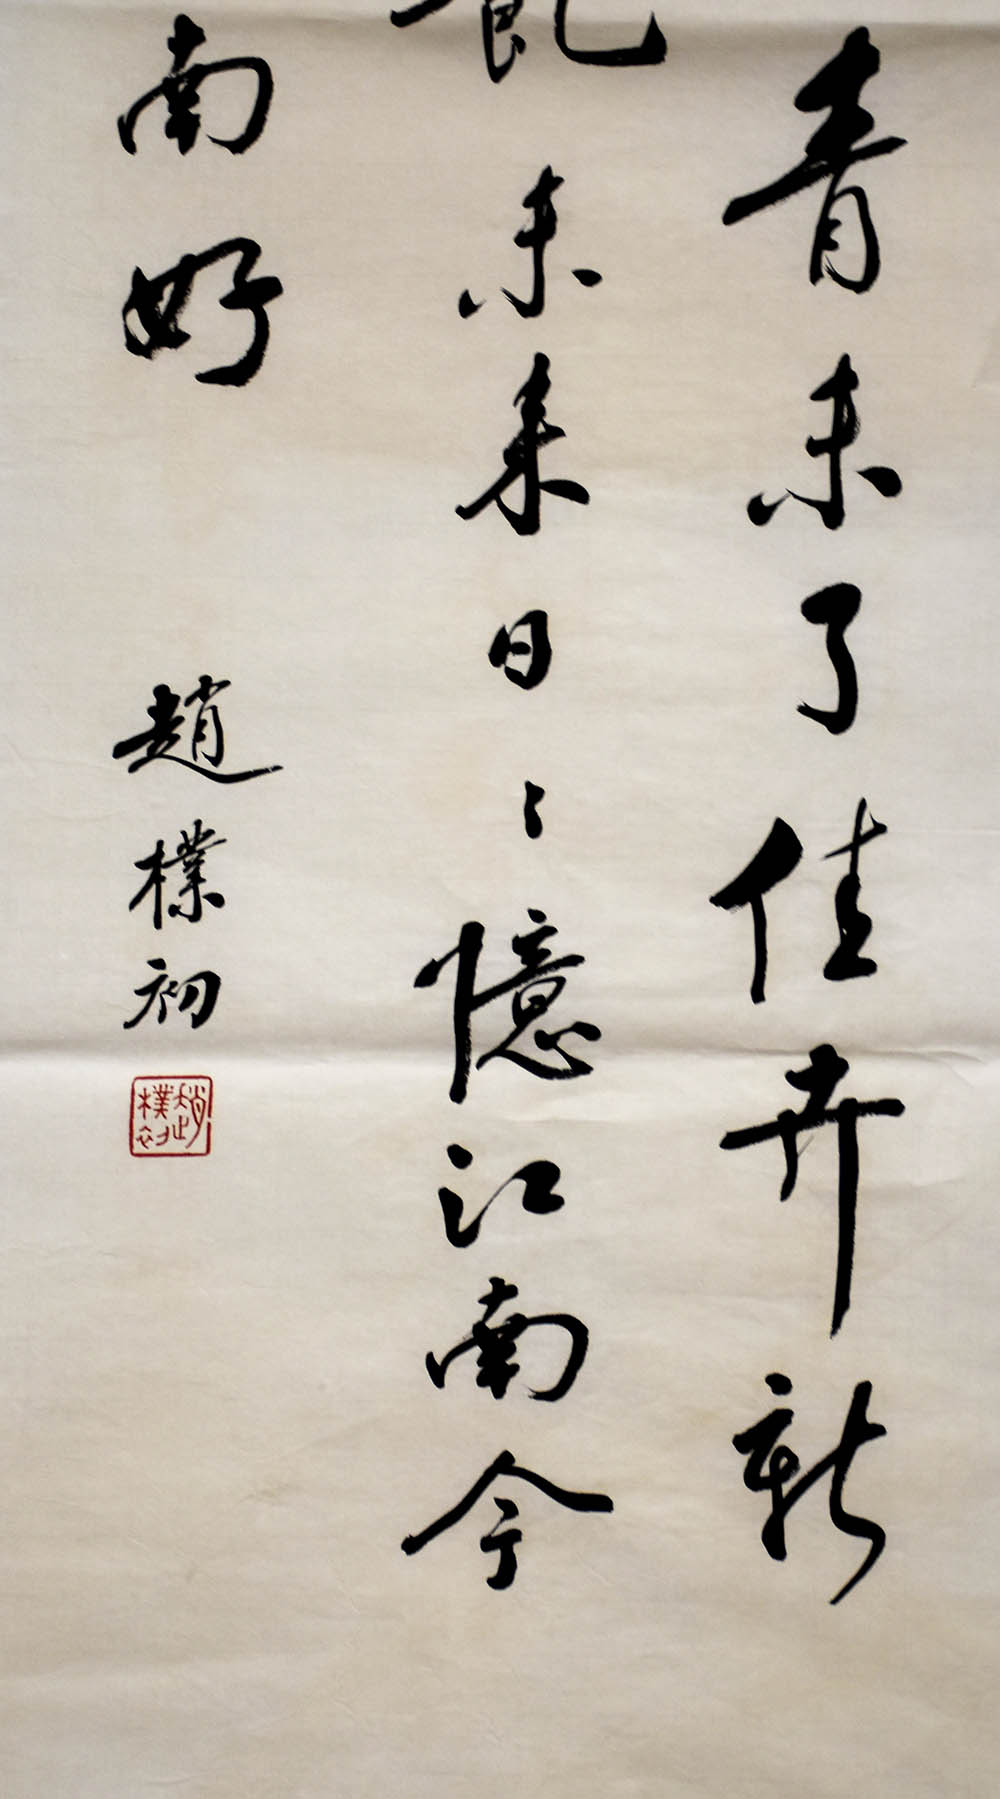 青未了佳卉新
未来日々憶江南今
南好
趙樸初
趙樸初